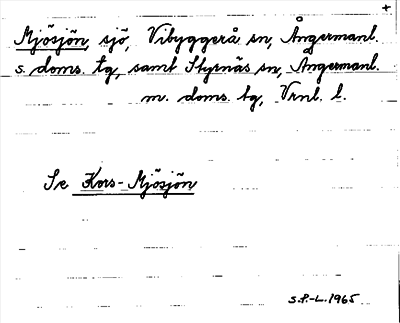 +
Mjösjön, sjö, Vibyggerå sn, Ångermanl.
s. doms. tg, samt Styrnäs sn, Ångermanl.
m. doms. tg, Vrnl. l.
Se Kors-Mjösjön
S.P-L. 1965